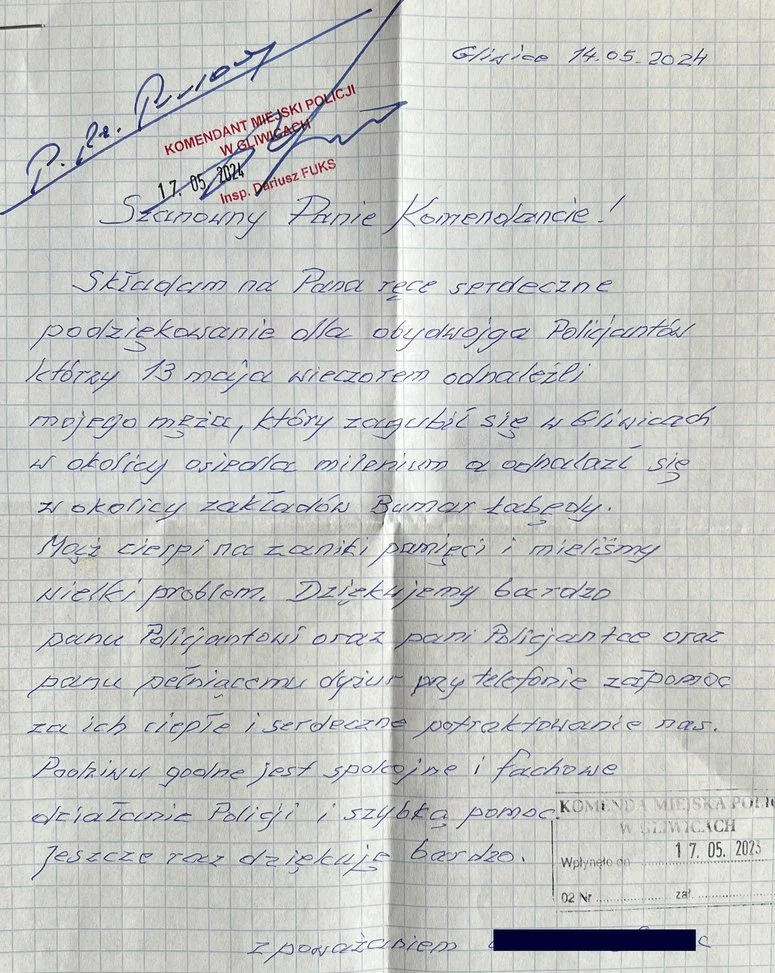 Gliwice 14.05.2024
P.
KOMENDANT MIEJSKI POLICJI
W GLIWICACH
17. 05. 2024
Insp. Dariusz FUKS
Szanowny Panie Komendancie!
Składam na Pana ręce serdeczne
podziękowanie dla obydwojga Policjantów
którzy 13 maja wieczorem odnaleźli
mojego męża, który zagubił się w Gliwicach
w okolicy osiedla milenium a odnalazł się
w okolicy zakładów Bumar Łabędy.
Mąż cierpi na zaniki pamięci i mieliśmy
wielki problem. Dziękujemy bardzo
panu Policjantowi oraz pani Policjantce oraz
panu pełniącemu dyżur przy telefonie za pomoc
za ich ciepłe i serdeczne potraktowanie nas.
Podziwu godne jest spokojne i fachowe
działanie Policji i szybka pomoc.
Jeszcze raz dziękuję bardzo.
KOMENDA MIEJSKA POLI
W GLIWICACH
Wpłynęło dn 17. 05. 2023
02 Nr zał.
z poważaniem